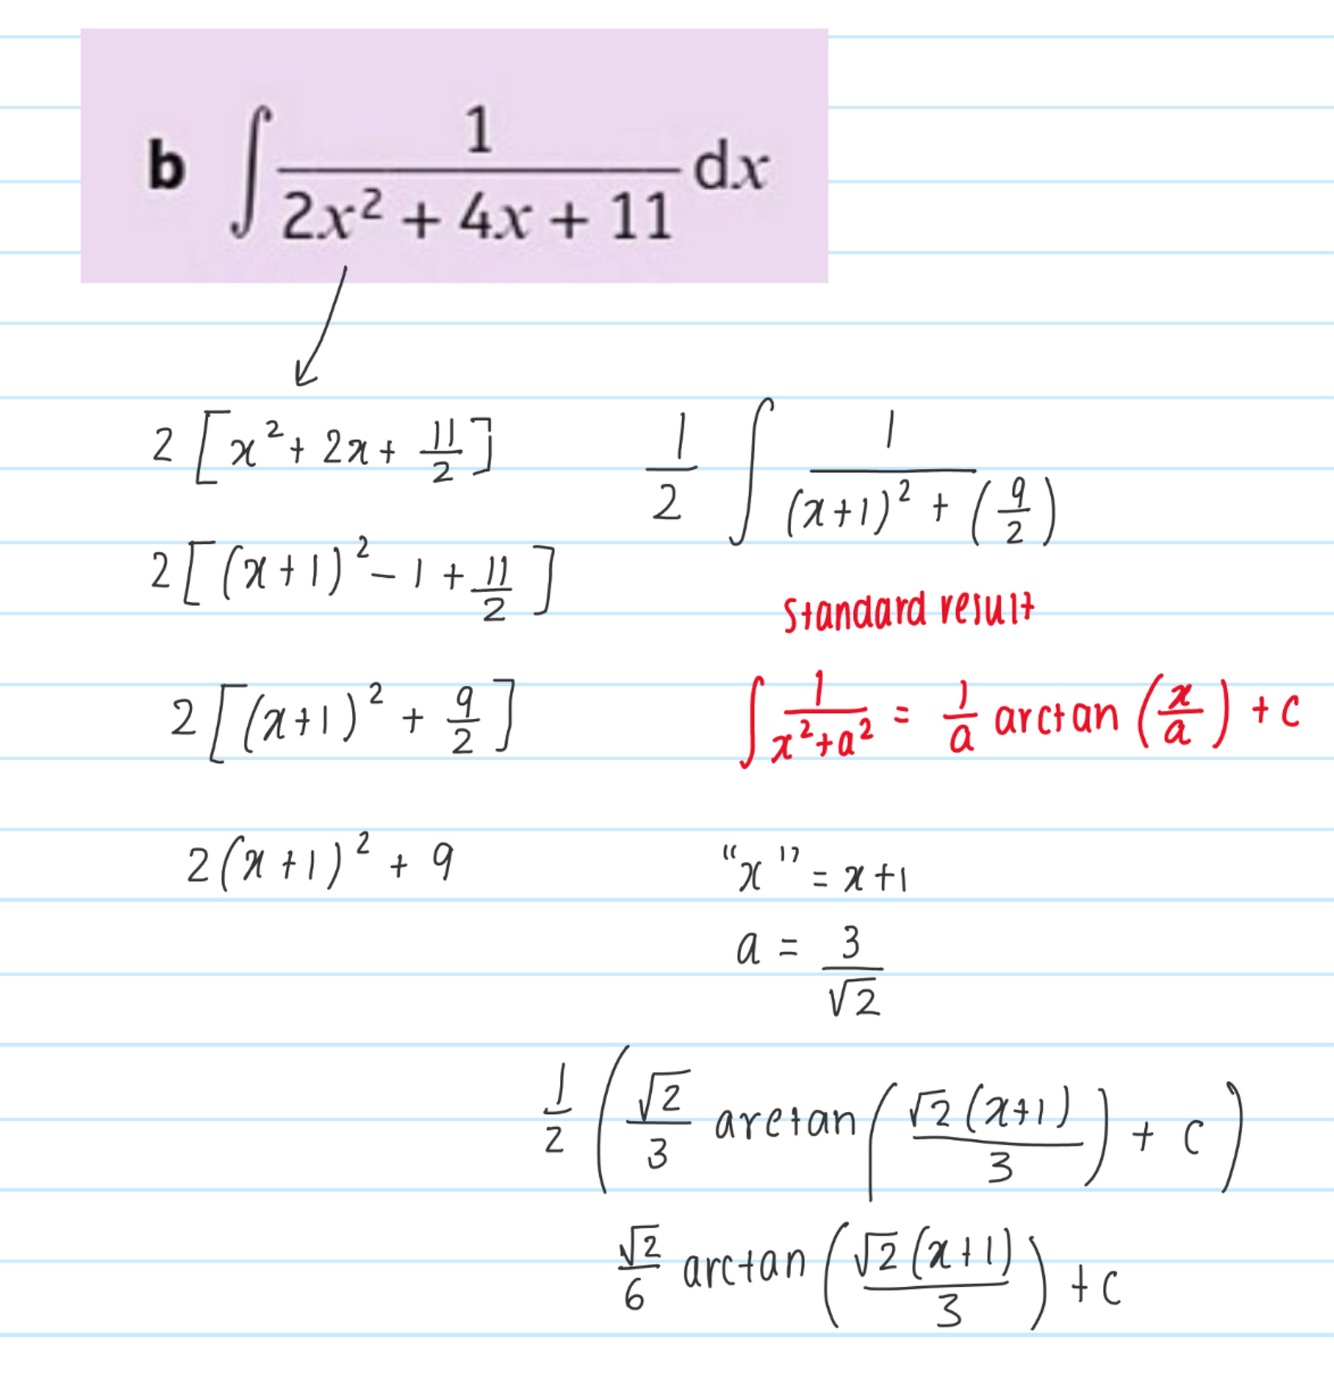 b ∫ 1/(2x² + 4x + 11) dx
2[x² + 2x + 11/2]
2[(x+1)² − 1 + 11/2]
2[(x+1)² + 9/2]
2(x+1)² + 9
1/2 ∫ 1/((x+1)² + (9/2))
standard result
∫ 1/(x²+a²) = 1/a arctan(x/a) + c
"x" = x+1
a = 3/√2
1/2 (√2/3 arctan(√2(x+1)/3) + c)
√2/6 arctan(√2(x+1)/3) + c